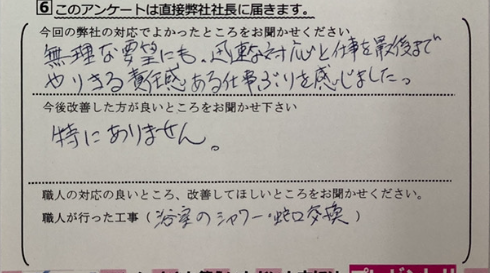 6 このアンケートは直接弊社社長に届きます。
今回の弊社の対応でよかったところをお聞かせください。
無理な要望にも、迅速な対応と仕事を最後まで
やりきる責任感ある仕事ぶりを感じました。
今後改善した方が良いところをお聞かせ下さい
特にありません。
職人の対応の良いところ、改善してほしいところをお聞かせください。
職人が行った工事（浴室のシャワー・蛇口交換）